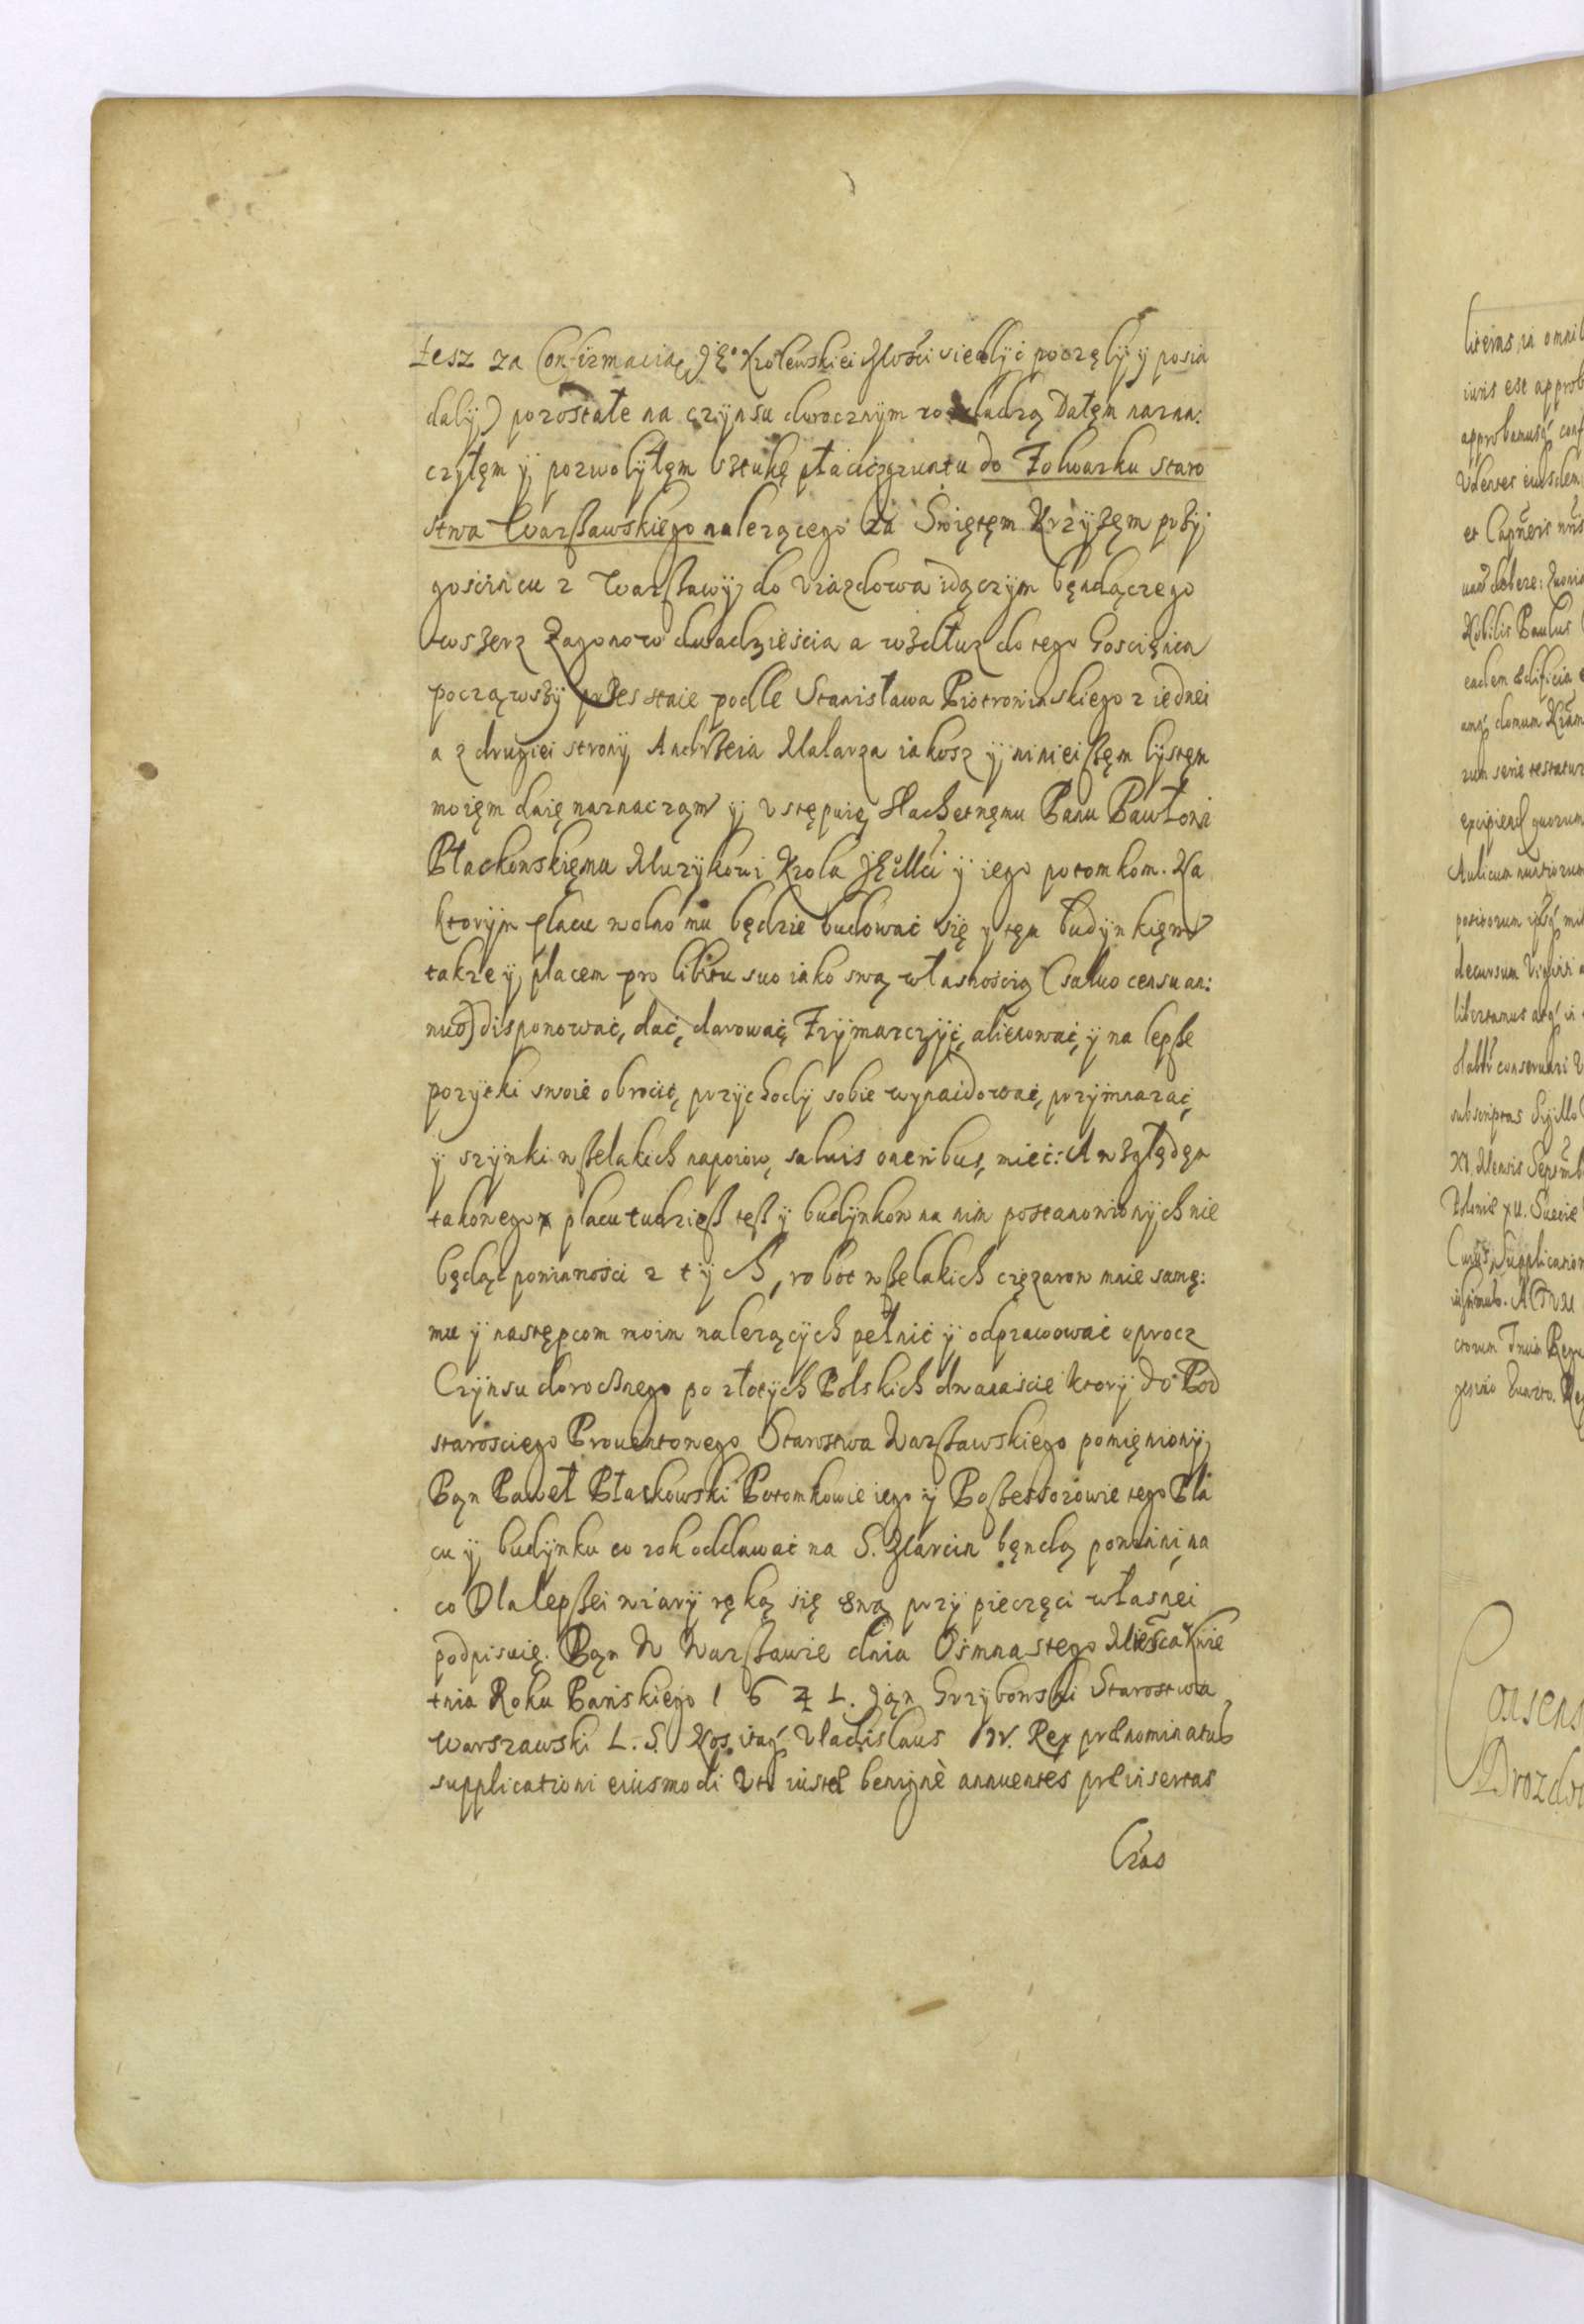 tesz za Confirmacią JE° Krolewskiei Mości siedlyć poczęly y posia
daly) pozostałe na czynsu dorocznym rozdadzą Dałęm nazna:
czyłęm y pozwolyłęm sztukę płacu gruntu do Folwarku staro
stwa Warszawskiego należącego za Świętęm Krzyżęm przy
gościńcu z Warszawy do Viazdowa idączym będączego
wszerz Zagonow dwadzieścia a wzdłuz do tego Gościńca
począwszy przes staie podle Stanisława Piotrowinskiego z iednei
a z drugiei strony Andrzeia Malarza iakosz y ninieiszęm lystęm
moięm daię naznaczam y vstępuię Slachetnęmu Panu Pawłowi
Płackowskięmu Muzykowi Krola JE°Mci y iego potomkom. Na
ktorym placu wolno mu będzie budować się y tęm budynkięm
takze y placem pro libitu suo iako swą własnoscią (saluo censu an:
nuo) disponować, dać, darować, Frymarczyć, alienować, y na lepsze
pozytki swoie obrocić, przychody sobie wynaidować, przymnazać,
y szynki wszelakich napoiow, saluis oneribus, mieć: A wzglądęm
takowego placu tudziesz tesz y budynkow na nim postanowionych nie
będąc powinności z tych, robot wszelakich cięzarow mnie samę:
mu y następcom moim nalezących pełnić y odprawować oprocz
Czynsu dorocznego po złotych Polskich dwanaście ktory do Pod
starosciego Prouentowego Starostwa Warszawskiego pomięniony
Pąn Paweł Płackowski Potomkowie iego y Possessorowie tego Pla
cu y budynku co rok oddawać na S. Marcin będą powinni, na
co Dla lepszei wiary ręką się swą przy pieczęci własnei
podpisuię. Dąn W Warszawie dnia Osmnastego Miesca Kwie
tnia Roku Pańskiego 1 6 4 1. Jąn Grzybowski Starostwa
Warszawski L. S. Nos itaq Vladislaus IV. Rex prænominatus
supplicationi eiusmodi Vti iustæ benignè annuentes præinsertas
Lras
literas in omnib
iuris est approb
approbamusq conf
Nobilis Paulus
eadem ædificia
rum serie testatur
Aulicum
decursum
subscriptas Sigillo
Consens
Drozdo